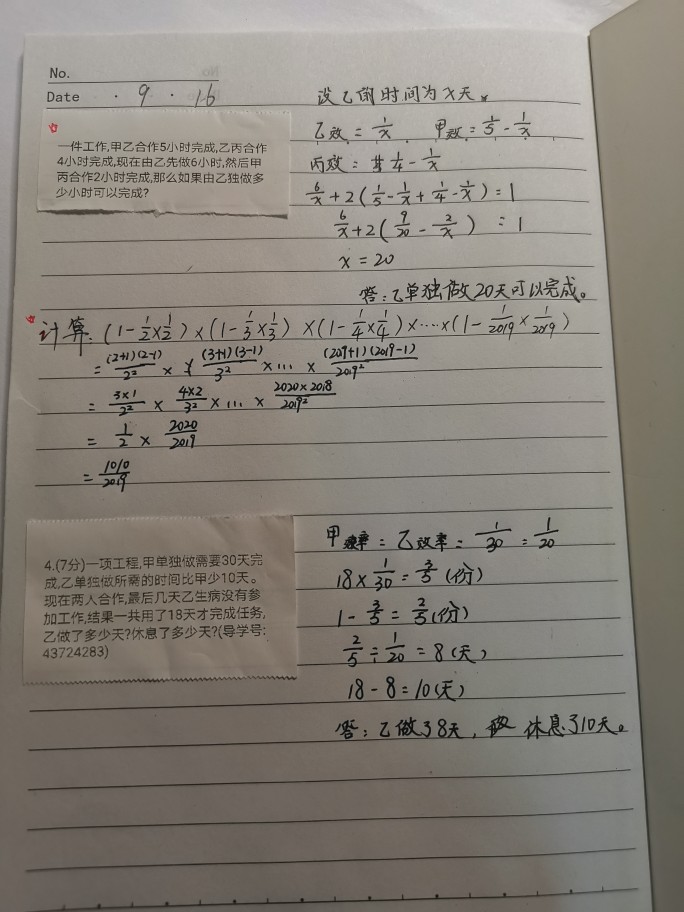 No.
Date · 9 · 16
一件工作,甲乙合作5小时完成,乙丙合作
4小时完成,现在由乙先做6小时,然后甲
丙合作2小时完成,那么如果由乙独做多
少小时可以完成?
设乙的时间为x天。
乙效 = 1/x 甲效 = 1/5 - 1/x
丙效 = 1/4 - 1/x
6/x + 2(1/5 - 1/x + 1/4 - 1/x) = 1
6/x + 2(9/20 - 2/x) = 1
x = 20
答:乙单独做20天可以完成。
计算:(1-1/2×1/2)×(1-1/3×1/3)×(1-1/4×1/4)×…×(1-1/2019×1/2019)
= (2+1)(2-1)/2² × (3+1)(3-1)/3² ×…× (2019+1)(2019-1)/2019²
= 3×1/2² × 4×2/3² ×…× 2020×2018/2019²
= 1/2 × 2020/2019
= 1010/2019
4.(7分)一项工程,甲单独做需要30天完
成,乙单独做所需的时间比甲少10天。
现在两人合作,最后几天乙生病没有参
加工作,结果一共用了18天才完成任务,
乙做了多少天?休息了多少天?(导学号:
43724283)
甲效率 = 乙效率 = 1/30 = 1/20
18×1/30 = 3/5 (份)
1 - 3/5 = 2/5 (份)
2/5 ÷ 1/20 = 8 (天)
18 - 8 = 10 (天)
答:乙做了8天, 休息了10天。